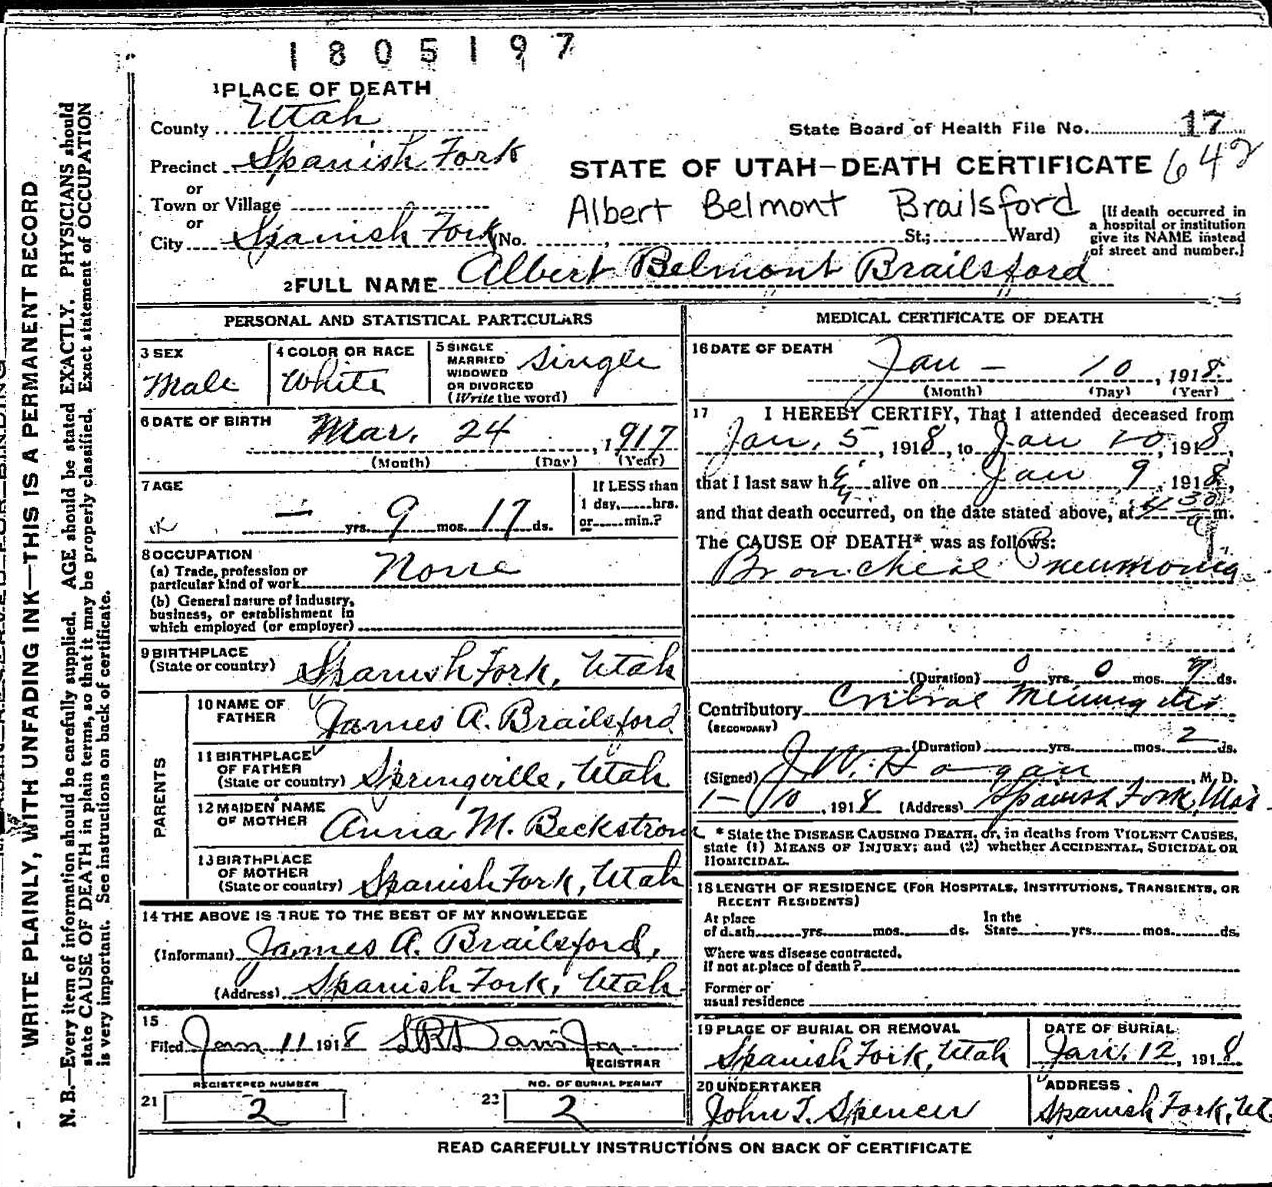 1805197
1 PLACE OF DEATH
County Utah
State Board of Health File No. 17
Precinct Spanish Fork
STATE OF UTAH—DEATH CERTIFICATE 642
or
Town or Village
Albert Belmont Brailsford
or
City Spanish Fork (No. , St.; Ward)
[If death occurred in
a hospital or institution
give its NAME instead
of street and number.]
2 FULL NAME Albert Belmont Brailsford
PERSONAL AND STATISTICAL PARTICULARS
3 SEX
Male
4 COLOR OR RACE
White
5 SINGLE
MARRIED
WIDOWED
OR DIVORCED
(Write the word)
Single
6 DATE OF BIRTH
Mar. 24, 1917
(Month) (Day) (Year)
7 AGE
— yrs. 9 mos. 17 ds.
If LESS than
1 day, hrs.
or min.?
8 OCCUPATION
(a) Trade, profession or
particular kind of work None
(b) General nature of industry,
business, or establishment in
which employed (or employer)
9 BIRTHPLACE
(State or country) Spanish Fork, Utah
PARENTS
10 NAME OF
FATHER James A. Brailsford
11 BIRTHPLACE
OF FATHER
(State or country) Springville, Utah
12 MAIDEN NAME
OF MOTHER Anna M. Beckstrom
13 BIRTHPLACE
OF MOTHER
(State or country) Spanish Fork, Utah
14 THE ABOVE IS TRUE TO THE BEST OF MY KNOWLEDGE
(Informant) James A. Brailsford,
(Address) Spanish Fork, Utah
15
Filed Jan 11 1918
REGISTRAR
REGISTERED NUMBER
21 2
NO. OF BURIAL PERMIT
22 2
MEDICAL CERTIFICATE OF DEATH
16 DATE OF DEATH
Jan — 10, 1918
(Month) (Day) (Year)
17 I HEREBY CERTIFY, That I attended deceased from
Jan. 5, 1918, to Jan 10, 1918,
that I last saw h alive on Jan 9, 1918,
and that death occurred, on the date stated above, at 4 30 m.
The CAUSE OF DEATH* was as follows:
Broncheal Pneumonia
(Duration) 0 yrs. 0 mos. 9 ds.
Contributory
(SECONDARY)
(Duration) yrs. mos. 2 ds.
(Signed) J. W. Hagan, M. D.
1-10, 1918 (Address) Spanish Fork,
* State the DISEASE CAUSING DEATH, or, in deaths from VIOLENT CAUSES,
state (1) MEANS OF INJURY; and (2) whether ACCIDENTAL, SUICIDAL OR
HOMICIDAL.
18 LENGTH OF RESIDENCE (FOR HOSPITALS, INSTITUTIONS, TRANSIENTS, OR
RECENT RESIDENTS)
At place
of death yrs. mos. ds.
In the
State yrs. mos. ds.
Where was disease contracted,
if not at place of death?
Former or
usual residence
19 PLACE OF BURIAL OR REMOVAL
Spanish Fork, Utah
DATE OF BURIAL
Jan. 12, 1918
20 UNDERTAKER
John T. Spencer
ADDRESS
Spanish Fork, Ut
READ CAREFULLY INSTRUCTIONS ON BACK OF CERTIFICATE
WRITE PLAINLY, WITH UNFADING INK—THIS IS A PERMANENT RECORD
N. B.—Every item of information should be carefully supplied. AGE should be stated EXACTLY. PHYSICIANS should
state CAUSE OF DEATH in plain terms, so that it may be properly classified. Exact statement of OCCUPATION
is very important. See instructions on back of certificate.